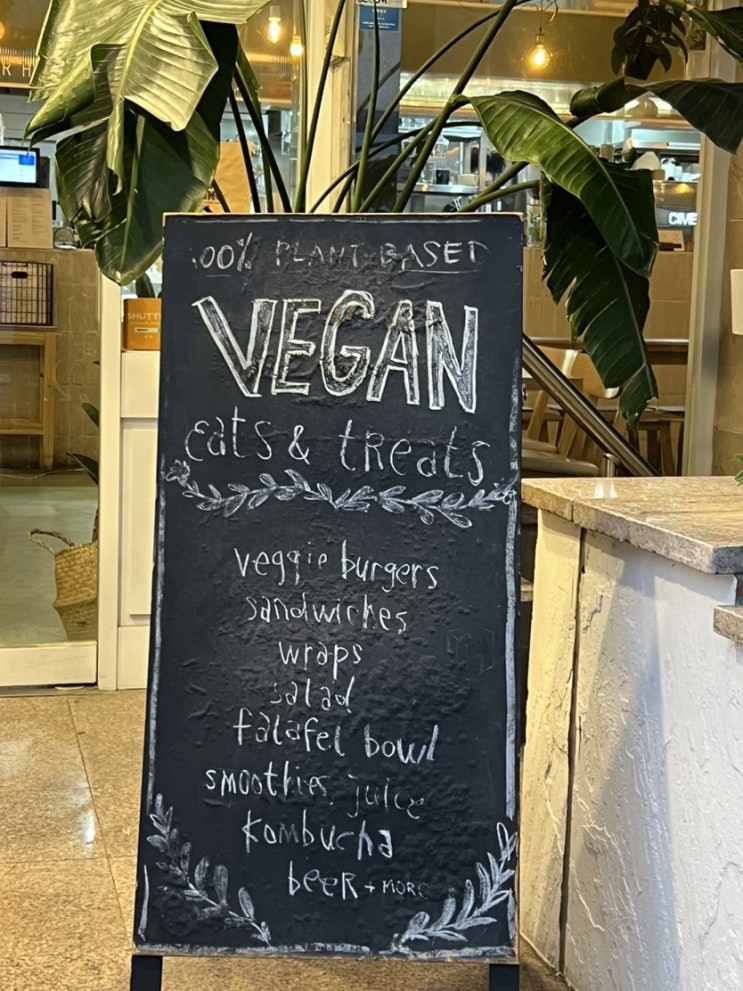 100% PLANT BASED
VEGAN
eats & treats
veggie burgers
sandwiches
wraps
salad
falafel bowl
smoothies, juice
kombucha
beer + MORE
SHUTT
CIME